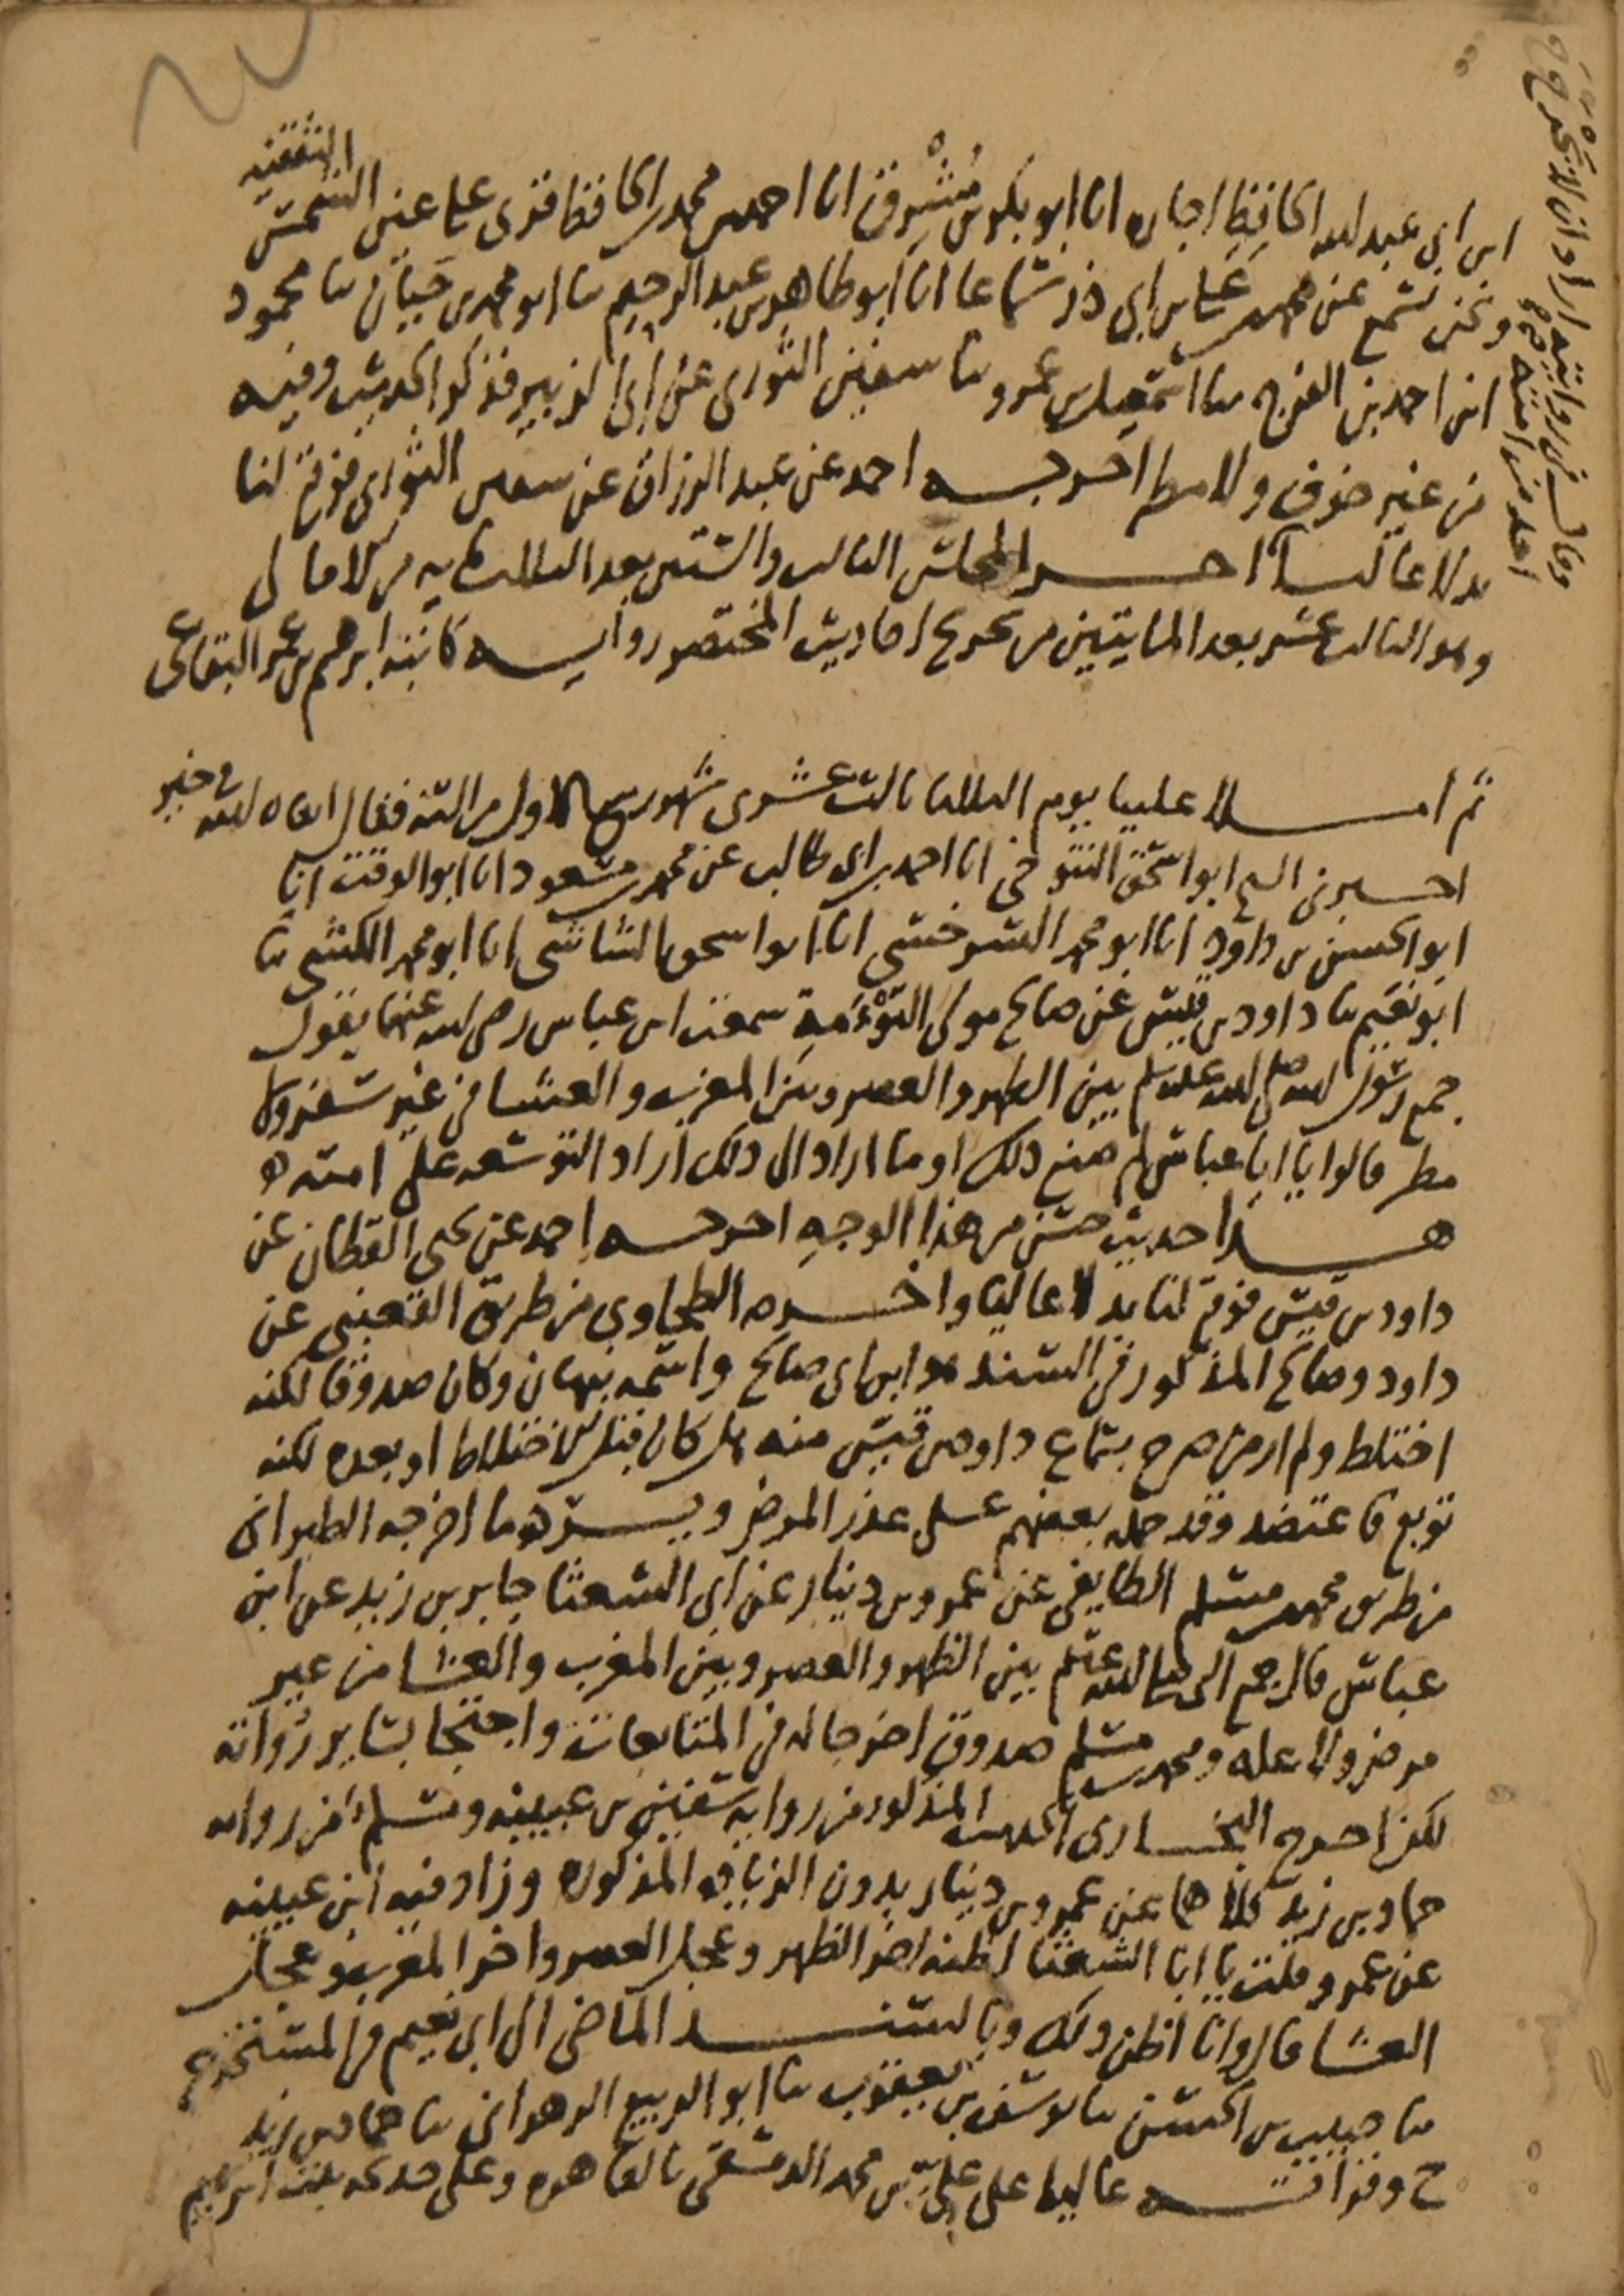 ابن ابى عبد الله الحافظ اجازه انا ابو بكر بن مُشْرِق انا احمد بن محمد الحافظ قرى على عين الشمس الثقفيه
ونحن نسمع عن محمد بن على بن ابى ذر سماعا انا ابو طاهر بن عبد الرحيم ثنا ابو محمد بن حَيَّان ثنا محمود
ابن احمد بن الفرج ثنا اسمعيل بن عمرو ثنا سفين الثورى عن ابى الزبير فذكر الحديث وفيه
من غير خوف ولا مطر اخرجه احمد عن عبد الرزاق عن سفين الثورى فوقع لنا
بدلا عاليا اخر المجلس الثالث والستين بعد الثلثمايه من الامالى
وهو الثالث عشر بعد المايتين من تخريج احاديث المختصر روايه كاتبه ابرهيم بن عمر البقاعى
ثم املا علينا يوم الثلثا ثالث عشرى شهر ربيع الاول من السنه فقال ابقاه الله فى خير
اخبرنى الشيخ ابو اسحق التنوخى انا احمد بن ابى طالب عن محمد بن مسعود انا ابو الوقت انا
ابو الحسن بن داود انا ابو محمد السرخسى انا ابو اسحق الشاشى انا ابو محمد الكشى ثنا
ابو نعيم ثنا داود بن قيس عن صالح مولى التَّوْءَمَةِ سمعت ابن عباس رضى الله عنهما يقول
جمع رسول الله صلى الله عليه وسلم بين الظهر والعصر وبين المغرب والعشا فى غير سفر ولا
مطر قالوا يا ابا عباس لم صنع ذلك او ما اراد الى ذلك اراد التوسعه على امته ه
هذا حديث حسن من هذا الوجه اخرجه احمد عن يحيى القطان عن
داود بن قيس فوقع لنا بدلا عاليا واخرجه الطحاوى من طريق القعنبى عن
داود وصالح المذكور فى السند هو ابن ابى صالح واسمه نبهان وكان صدوقا لكنه
اختلط ولم ار من صرح بسماع داود بن قيس منه هل كان قبل الاختلاط او بعده لكنه
توبع فاعتضد وقد حمله بعضهم على عذر المرض ويرده ما اخرجه الطبرانى
من طريق محمد بن مسلم الطايفى عن عمرو بن دينار عن ابى الشعثا جابر بن زيد عن ابن
عباس قال جمع النبى صلى الله عليه وسلم بين الظهر والعصر وبين المغرب والعشا من غير
مرض ولا عله ومحمد بن مسلم صدوق اخرجا له فى المتابعات واحتجا بساير رواته
لكن اخرج البخارى الحديث المذكور من روايه سفين بن عيينه ومسلم من روايه
حماد بن زيد كلاهما عن عمرو بن دينار بدون الزياده المذكوره وزاد فيه ابن عيينه
عن عمرو قلت يا ابا الشعثا اظنه اخر الظهر وعجل العصر واخر المغرب وعجل
العشا قال وانا اظن ذلك وبالسند الماضى الى ابى نعيم فى المستخرج
ثنا حبيب بن الحسن ثنا يوسف بن يعقوب ثنا ابو الربيع الزهرانى ثنا حماد بن زيد
ح وقراته عاليا على على بن محمد الدمشقى بالقاهره وعلى خديجه بنت ابرهيم
وقال فى روايته اراد ان لا يحرج
احد من امته